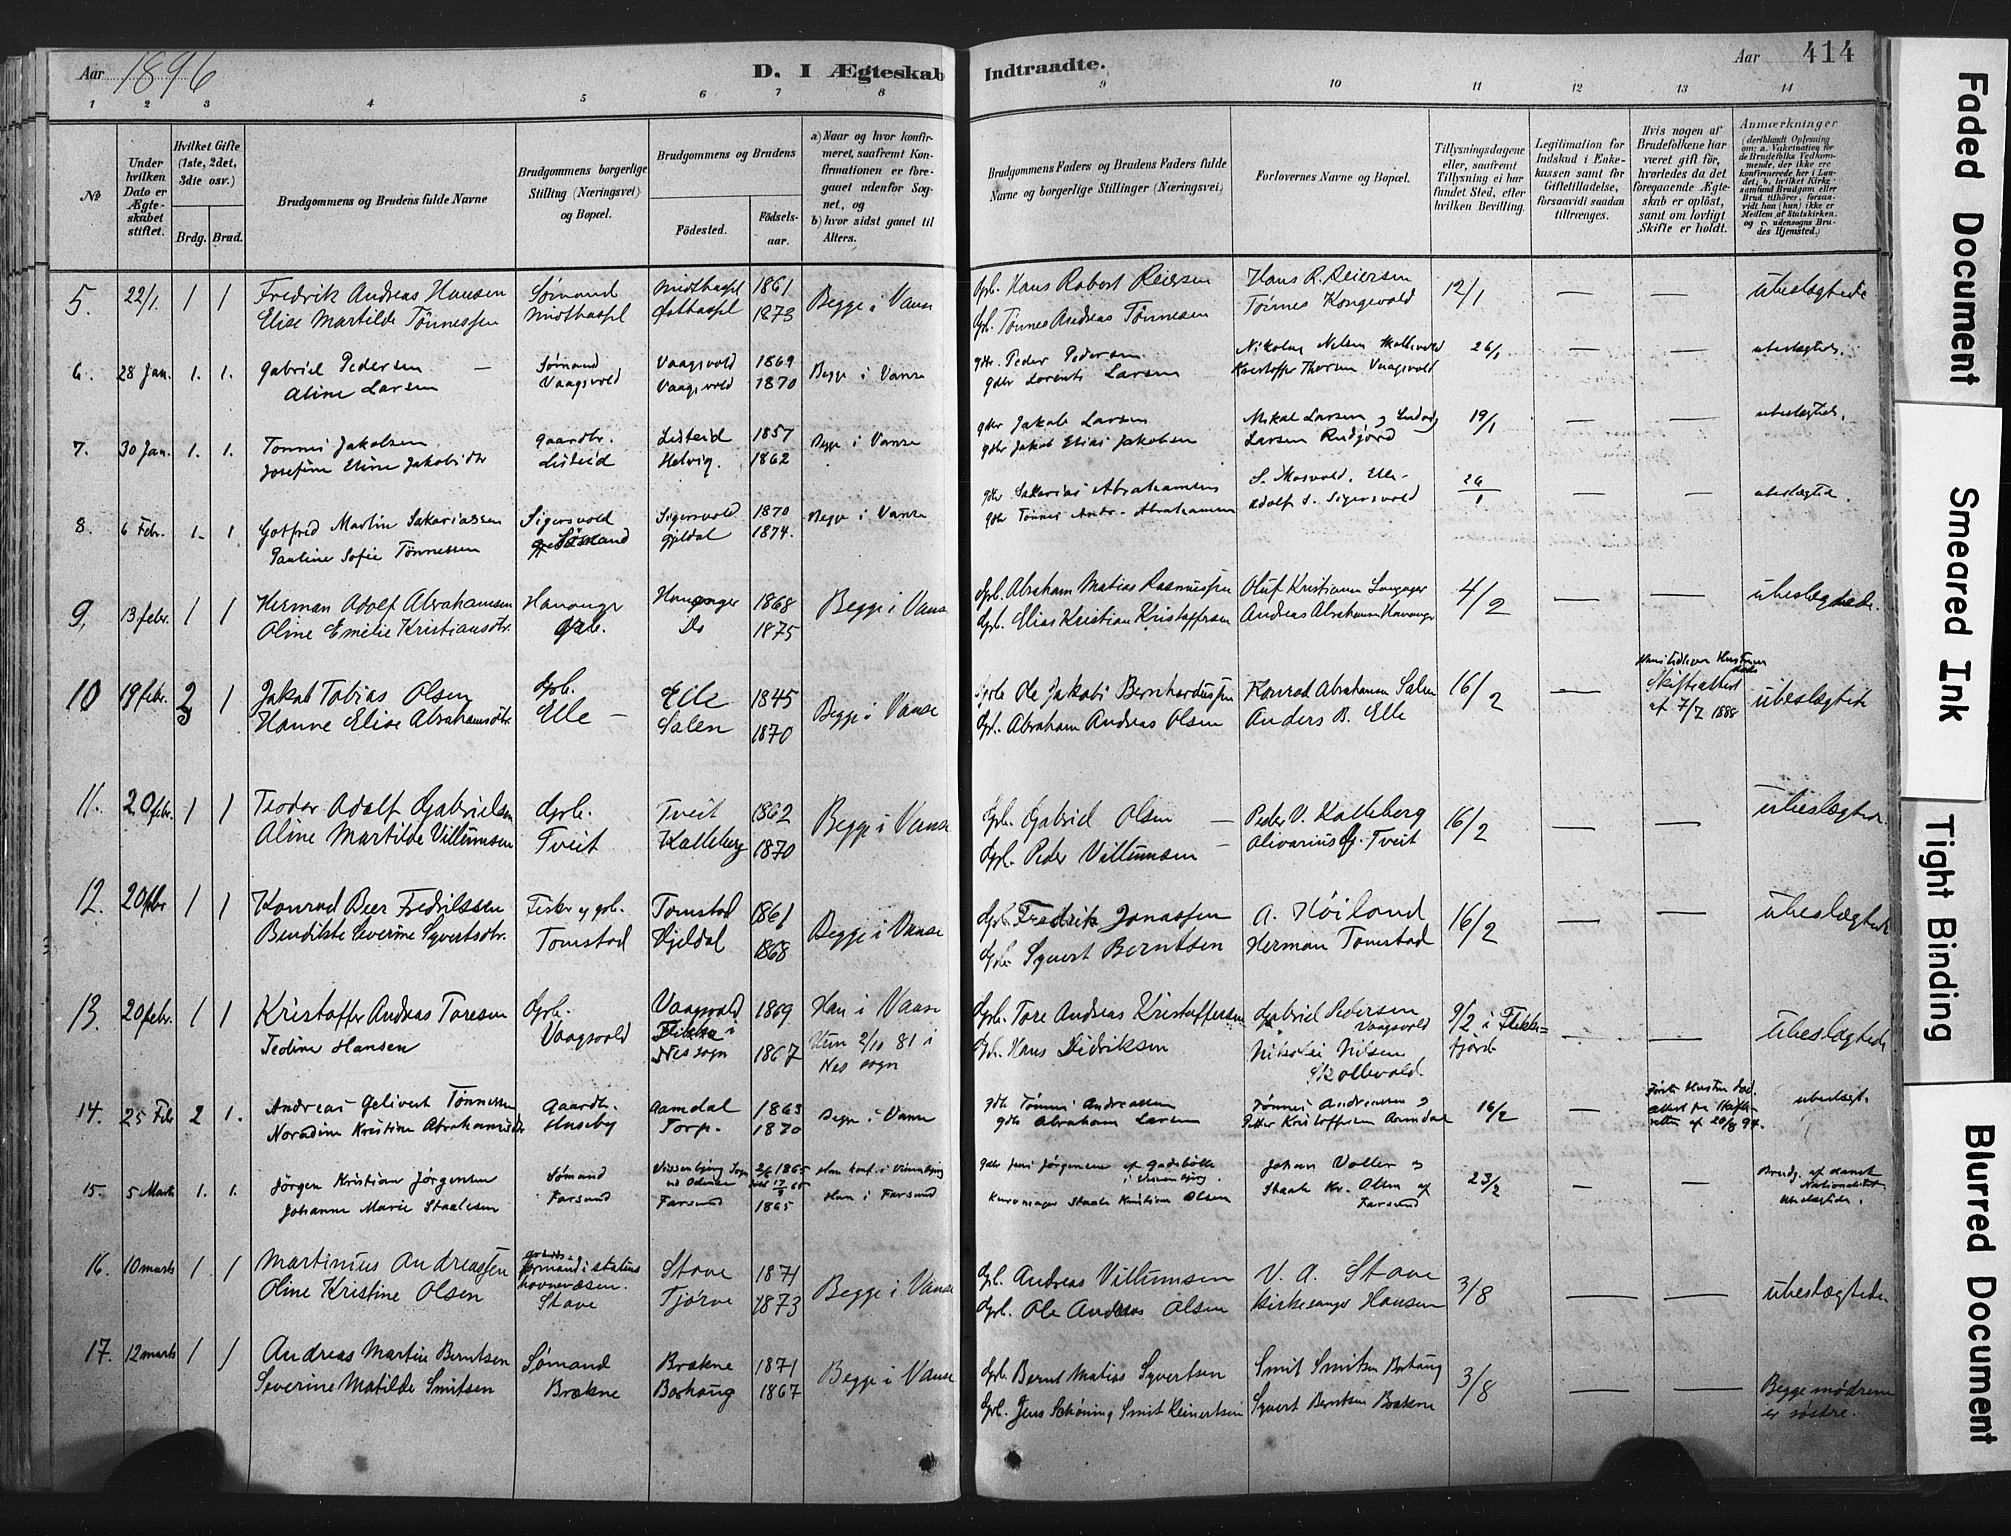 Aar 1896
D. I Ægteskab Indtraadte.
Aar 414
1 2 3 4 5 6 7 8 9 10 11 12 13 14
№
Under hvilken Dato er Ægteskabet stiftet.
Hvilket Gifte (1ste, 2det, 3die osv.)
Brdg. Brud.
Brudgommens og Brudens fulde Navne
Brudgommens borgerlige Stilling (Næringsvei) og Bopæl.
Brudgommens og Brudens
Födested.
Födselsaar.
a) Naar og hvor konfirmeret, saafremt Konfirmationen er foregaaet udenfor Sognet, og
b) hvor sidst gaaet til Alters.
Brudgommens Faders og Brudens Faders fulde Navne og borgerlige Stillinger (Næringsvei)
Forlovernes Navne og Bopæl.
Tillysningsdagene eller, saafremt Tillysning ei har fundet Sted, efter hvilken Bevilling.
Legitimation for Indskud i Enkekassen samt for Giftetilladelse, forsaavidt saadan tiltrænges.
Hvis nogen af Brudefolkene har været gift för, hvorledes da det foregaaende Ægteskab er oplöst, samt om lovligt Skifte er holdt.
Anmærkninger (deriblandt Oplysning om: a. Vakcination for de Brudefolks Vedkommende, der ikke ere konfirmerede her i Landet; b. hvilket Kirkesamfund Brudgom eller Brud tilhörer, forsaavidt han (hun) ikke er Medlem af Statskirken. og c. udensogns Brudes Hjemsted.)
5. 22/1. 1 1 Fredrik Andreas Hansen Sømand Midthassel 1861 Begge i Vanse Gbr. Hans Robert Reiersen Hans R. Reiersen 12/1 — — ubeslægtede
Elise Martilde Tönnessen Midthassel Østhassel 1873 Gbr. Tönnes Andreas Tönnesen Tönnes Kongevold
6. 28 Jan. 1. 1. Gabriel Pedersen — Sømand Vaagsvold 1869 Begge i Vanse gdbr Peder Pedersen Nikolay Nilsen Skollevold 26/1 — — ubeslægtede.
Aline Larsen Vaagsvold Vaagsvold 1870 gdbr Lorents Larsen Kristoffer Thorsen Vaagsvold
7. 30 Jan. 1. 1. Tönnes Jakobsen gaardbr. Listeid 1857 Begge i Vanse gdbr Jakob Larsen Mikal Larsen og Ludvig 19/1 — — ubeslægtede.
Josefine Eline Jakobsdtr Listeid Helvig. 1862 gdbr Jakob Elias Jakobsen Larsen Rudjord
8. 6 Febr. 1. 1. Gotfred Martin Sakariassen Sigersvold Sigersvold 1870 Begge i Vanse gdbr Sakarias Abrahamsen S. Mosvold, Elle 26/1 — — ubeslægtede.
Pauline Sofie Tönnessen Sømand Gjeldal 1874. gdbr Tönnes Andr. Abrahamsen Adolf S. Sigersvold
9. 13 febr. 1 1 Herman Adolf Abrahamsen Hananger Hananger 1868 Begge i Vanse Gbr. Abraham Matias Rasmussen Oluf Kristiansen 4/2 — — ubeslægtede.
Oline Emilie Kristiansdtr. Gbr. Do 1875 Gbr. Elias Kristian Kristoffersen Andreas Abrahamsen Hananger
10 19 febr. 2 1 Jakob Tobias Olsen Gbr. Elle 1845 Begge i Vanse Gbr. Ole Jakobi Bernhardussen Konrad Abrahamsen Salen 16/2 — Skifteattest af 7/7 1888 ubeslægtede
Hanne Elise Abrahamsdtr. Elle — Salen 1870 Gbr. Abraham Andreas Olsen Anders B. Elle
11. 20 febr. 1 1 Teodor Adolf Gabrielsen Gbr. Tveit 1862 Begge i Vanse Gbr. Gabriel Olsen — Peder V. Kalleberg 16/2 — — ubeslægtede.
Aline Martilde Villumsen Tveit Kalleberg 1870 Gbr. Peder Villumsen — Olivarius G. Tveit
12. 20 febr 1 1 Konrad Beer Fredriksen Fisker og gbr. Tomstad 1861 Begge i Vanse Gbr. Fredrik Jonassen A. Höiland 16/2 — — ubeslægtede
Bendikte Severine Syvertsdtr. Tomstad Gjeldal 1868 Gbr. Syvert Berntsen Herman Tomstad
13. 20 febr. 1 1 Kristoffer Andreas Toresen Gbr. Vaagsvold 1869 Han i Vanse Gbr. Tore Andreas Kristoffersen Gabriel Pedersen Vaagsvold 9/2 i Flekkefjord — — ubeslægtede
Tedine Hansen Vaagsvold Flikka i Nes sogn 1867 Hun 2/10 81 i Nes sogn Gbr. Hans Didriksen Nikolai Nilsen Skollevold.
14. 25 Feb 2 1. Andreas Gelivert Tönnessen Gaardbr. Aamdal 1863 Begge i Vanse gdbr Tönnes Andreassen Tönnes Andreassen og 16/2 — ubeslægt.
Noradine Kristine Abrahamsdtr Huseby Torp. 1870 gdbr Abraham Larsen Petter Kristoffersen Aamdal
15. 5 Marts 1. 1. Jörgen Kristian Jörgensen Sømand Vissenbjerg Sogn ved Odense 1865 gdbr Jens Jörgensen af Johan Voller og 23/2 — — Brudg. af dansk Nationalitet. Ubeslægtede.
Johanne Marie Staalesen Farsund Farsund 1865 Hun i Farsund Staale Kristian Olsen Staale Kr. Olsen af Farsund
16. 10 marts 1 1 Martinius Andreassen formand i statens havnevæsen. Stave 1871 Begge i Vanse Gbr. Andreas Villumsen V. A. Stave 3/8 — — ubeslægtede
Oline Kristine Olsen Stave Tjörve 1873 Gbr. Ole Andreas Olsen Kirkesanger Hansen
17. 12 marts 1 1 Andreas Martin Berntsen Sømand Brekne 1871 Begge i Vanse Gbr. Bernt Matias Syvertsen Smit Smitsen Borhaug 3/8 — — Begge mødrene er søstre.
Severine Matilde Smitsen Brekne Borhaug 1867 Gbr. Jens Schöning Smit Reinertsen Syvert Berntsen Brekne
Faded Document
Smeared Ink
Tight Binding
Blurred Document